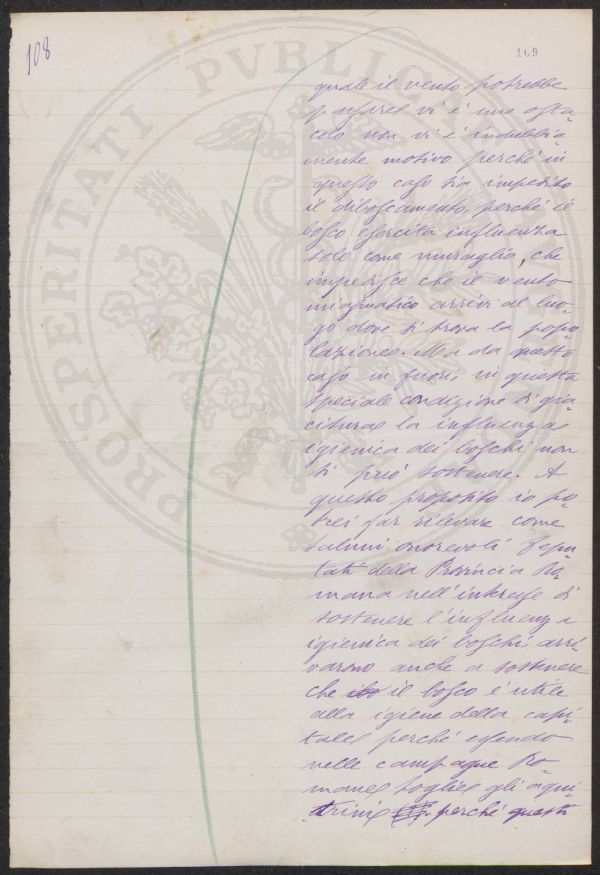 108
109
quale il vento potrebbe
passare vi è una osta-
colo non vi è indubbia-
mente motivo perché in
questo caso sia impedito
il diboscamento, perché il
bosco esercita influenza
solo come muraglia, che
impedisce che il vento
miasmatico arrivi al luo-
go dove si trova la popo-
lazione. Ma da questo
caso in fuori, in questa
speciale condizione di gia-
citura la influenza
igienica dei boschi non
si può sostenere. A
questo proposito io po-
trei far rilevare come
taluni onorevoli depu-
tati della Provincia Ro-
mana nell'interesse di
sostenere l'influenza
igienica dei boschi, arri-
varono anche a sostenere
che il bosco è utile
alla igiene della capi-
tale perché essendo
nelle campagne Ro-
mane toglie gli aqui-
trini perché questi
PROSPERITATI PVBLICAE